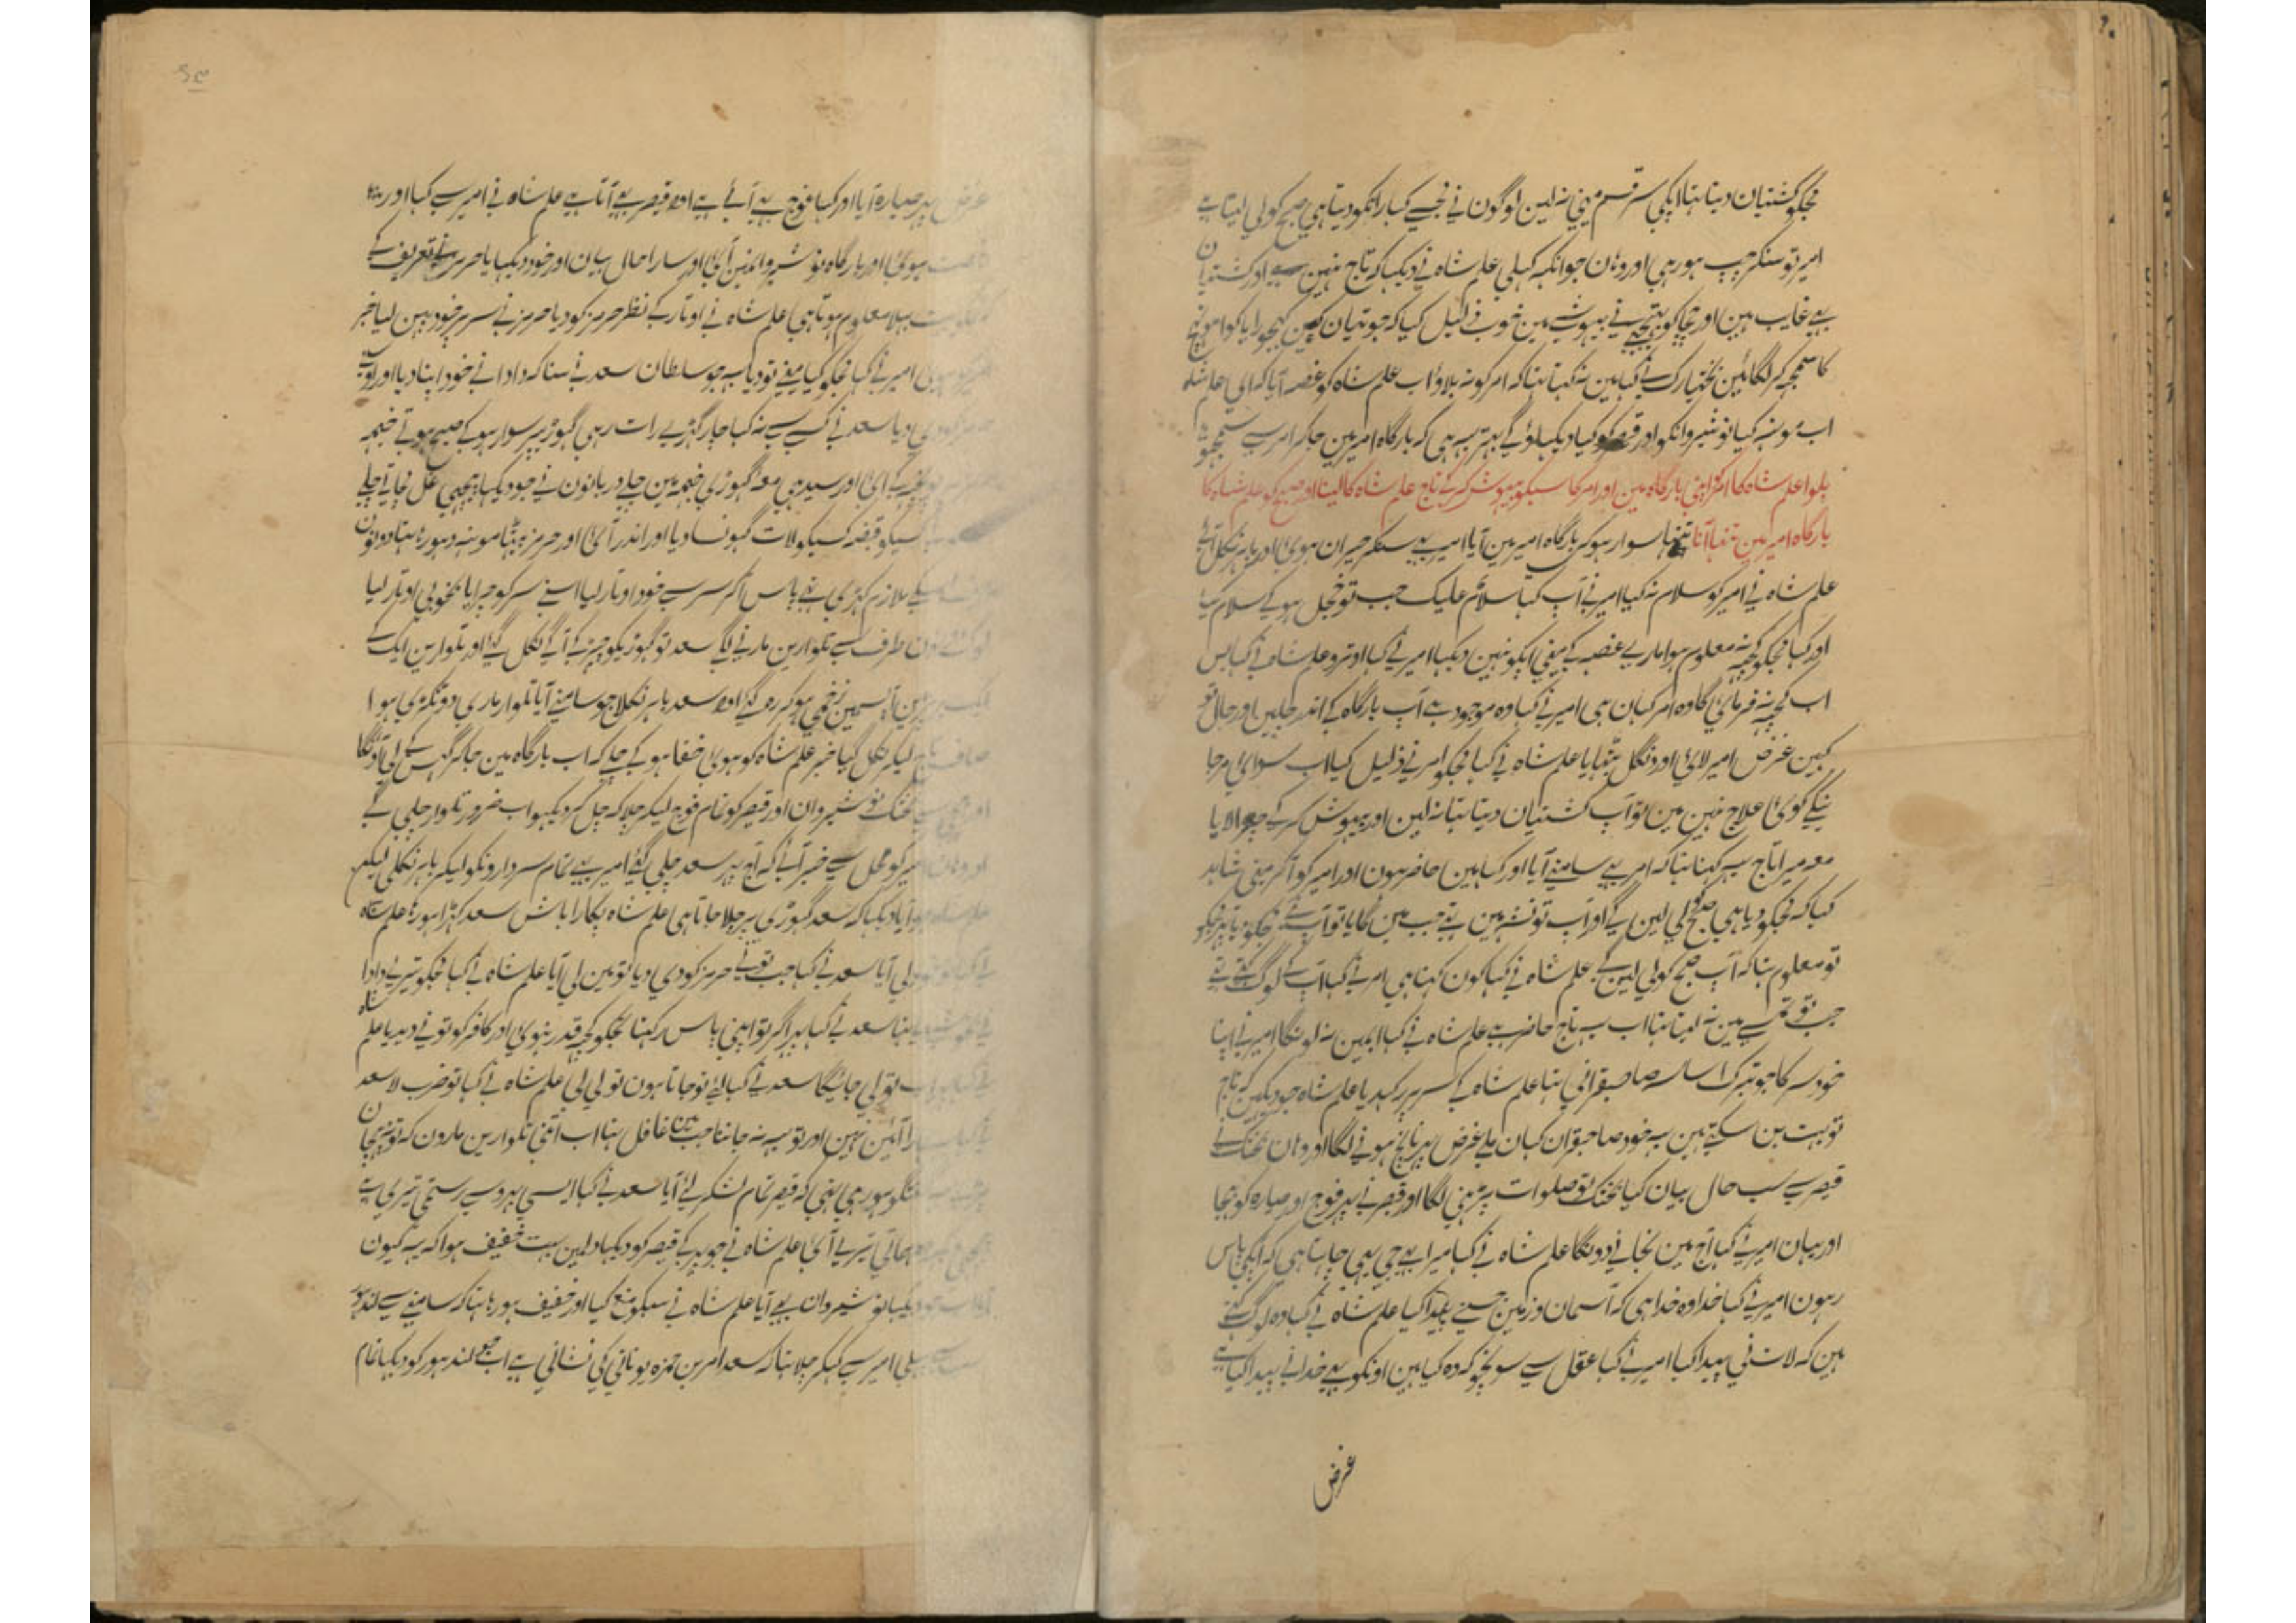 مجکو کشتیان دیتا تہا اپکی سر قسم مینی نہ لین لوگون نی مجسے کہا رانکو دیتا ہی صبح کو لی لیتا ہے
امیر تو سنکر چپ ہو رہی اور وہان جو انکہہ کہلی علم شاہ نی دیکہا کہ تاج نہین ہے اور کشتیان
بہی غایب ہین اور مجکو بہتیجے نی بیہوشے مین خوب ذلیل کیا کہ جوتیان
کا سمجہہ کر لگائین بختیارک نی کہا مین نہ کہتا تہا کہ امر کو نہ بلاؤ اب علم شاہ کو غصہ آیا کہ ای علم شاہ
اب مونہہ کیا نوشیروانکو اور قیصر کو کیا دیکہلاؤ گے بہتر یہ ہی کہ بارگاہ امیر مین جا کر امر سے سمجہو
بلوا علم شاہ کا امر کو اپنی بارگاہ مین اور امر کا سبکو بیہوش کر کے تاج علم شاہ کا لینا اور صبح کو علم شاہ کا
بارگاہ امیر مین تنہا آنا تنہا سوار ہو کر بارگاہ امیر مین آیا امیر یہ سنکر حیران ہوئ اور باہر نکل آئے
علم شاہ نی امیر کو سلام نہ کیا امیر نی آپ کہا سلام علیک جب تو خجل ہو کے سلام کیا
اور کہا مجکو کچہہ نہ معلوم ہوا ماری غصہ کے مینی اپکو نہین دیکہا امیر نی کہا اوترو علم شاہ نی کہا بس
اب کچہہ نہ فرمائی گا وہ امر کہان ہی امیر نی کہا وہ موجود ہے آپ بارگاہ کے اندر چلین اور حال تو
کہین غرض امیر لائ اور دنگل بٹہایا علم شاہ نی کہا مجکو امر نی ذلیل کیا اب سوای مر جا
نیکے کوئ علاج نہین مین تو آپ کشتیان دیتا تہا نہ لین اور بیہوش کر کے چورا لایا
معہ میرا تاج یہ کہتا تہا کہ امر بہی سامنے آیا اور کہا مین حاضر ہون اور امیر کو آ کر مینی شاہد
کہا کہ مجکو دیا ہی صبح لی لین گے اور آپ تو نشہ مین تہے جب مین گایا تو آپ نے مجکو
تو معلوم تہا کہ آپ صبح کو لی لین گے علم شاہ نی کہا کون کہتا ہی امر نی کہا آپ کے لوگ کہتے تہے
جب تو قسمے مین نہ لیتا تہا اب یہ تاج حاضر ہے علم شاہ نی کہا ابمین نہ لونگا امیر نی اپنا
خود سر کا جو تبرک صاحبقرانی تہا علم شاہ کے سر پر رکہدیا علم شاہ جو دیکہین کہ تاج
تو بہت بن سکتے ہین یہ خود صاحبقران کہان ملے غرض پہر ناچ ہونی لگا اور وہان بختک نے
قیصر سے سب حال بیان کیا بختک تو صلوات پڑہنی لگا اور قیصر نی پہر فوج اور صیارہ کو بہیجا
اور یہان امیر نی کہا آج مین نجانی دونگا علم شاہ نی کہا میرا بہی جی یہی چاہتا ہی کہ اپکی پاس
رہون امیر نی کہا خدا وہ خدا ہی کہ آسمان و زمین جسنے پیدا کیا علم شاہ نی کہا وہ لوگ کہتے
ہین کہ لات نی پیدا کیا امیر نی کہا عقل سے سوچو کہ وہ کیا ہین اونکو بہی خدا نی پیدا کیا ہے
غرض
غرض پہر صیارہ آیا اور کہا فوج بہی آئے ہے اور قیصر بہی آتا ہے علم شاہ نی امیر سے کہا اور
ہوئ اور بارگاہ نوشیروانمین آئ اور سارا حال بیان اور خود دیکہایا حرمز نے تعریف کے
بہلا معلوم ہوتا ہی علم شاہ نی اوتار کے نظر حرمز کو دیا حرمز نی سر پر خود پہن لیا خبر
امیر نی کہا مجکو کیا مینی تو دیا ہے جو سلطان سعد نی سنا کہ دادا نی خود اپنا دیا اور اوسے
دیا سعد نی کسے سے نہ کہا چار گہڑے رات رہی گہوڑی پر سوار ہو کے صبح ہوتے خیمہ
کے آئ اور سیدہی معہ گہوڑی خیمہ مین چلے دربانون نی جو دیکہا پیچہی غل مچاتی چلے
کسیکو قبضہ کسیکو لات گہونسا دیا اور اندر آئ اور حرمز بیٹہا مونہہ دہو رہا تہا دونون
ملازم کہڑی تہے پاس آ کر سر سے خود اوتار لیا اسنے سر کو چرایا بخوبی اوتار لیا
طرف سے تلوارین مارنی لگے سعد تو گہوڑیکو چیز کے آگے نکل گیا اور تلوارین ایک کے
آپسمین زخمی ہو کر رہ گئے اور سعد باہر نکلا جو سامنے آیا تلوار ماری دو ٹکڑی ہوا
لیکر نکل گیا خبر علم شاہ کو ہوئ خفا ہو کے چلے کہ اب بارگاہ مین جا کر گہس کے لی آونگا
بختک نوشیروان اور قیصر کو تمام فوج لیکر چلا کہ چل کر دیکہو اب ضرور تلوار چلے گے
امیر کو محل سے خبر آئے کہ آج پہر سعد چلی گئے امیر بہی تمام سردارونکو لیکر باہر نکلی لیکن
آیا دیکہا کہ سعد گہوڑی پر چلا جاتا ہی علم شاہ پکارا باش سعد کہڑا ہو رہا علم شاہ
لی آیا سعد نی کہا جب تونے حرمز کو دی دیا تو مین لی آیا علم شاہ نی کہا مجکو تیری دادا
سعد نی کہا پہر اگر تو اپنی پاس رکہتا تجکو کچہہ قدر نہوئ اور کافر کو تونے دیدیا علم شاہ
تو لی جائیگا سعد نی کہا لئے تو جاتا ہون تو لی لی علم شاہ نی کہا تو ضرب لا سعد
آئین نہین اور تو یہ نہ جانتا جب غافل تہا اب اتنی تلوارین مارون کہ تو پہچان
گفتگو ہو رہی تہی کہ قیصر تمام لشکر لئے آیا سعد نی کہا ایسی پر رستمی تیری ہے
حمایتی تیرے آئ علم شاہ نی جو پہر کے قیصر کو دیکہا دلمین بہت خفیف ہوا کہ یہ کیون
دیکہا نوشیروان بہی آیا علم شاہ نی سبکو منع کیا اور خفیف ہو رہا تہا کہ سامنے سے لندہور
امیر سے کہکر چلا تہا کہ سعد امر بن حمزہ یونانی کی نشانی ہے اب جو لندہور کو دیکہا تمام